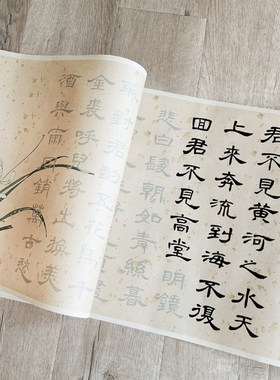 君不見黃河之水天
上來奔流到海不復
回君不見高堂明鏡
悲白髮朝如青絲暮
金裘呼兒將出換美
酒與爾同銷萬古愁